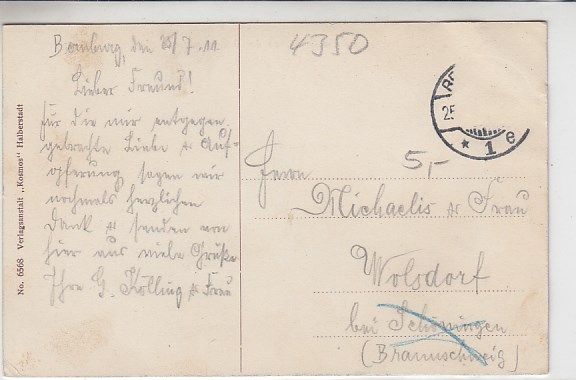 Bernburg, den 25/7. 11.
Lieber Freund!
Für die mir entgegen
gebrachte Liebe & Auf-
opferung sagen wir
nochmals herzlichen
Dank & senden von
hier aus viele Grüße
Ihre G. Kölling & Frau
4350
5,-
25
* 1 e
Herrn
Michaelis & Frau
Wolsdorf
bei Schöningen
(Braunschweig)
No. 6568 Verlagsanstalt „Kosmos“ Halberstadt